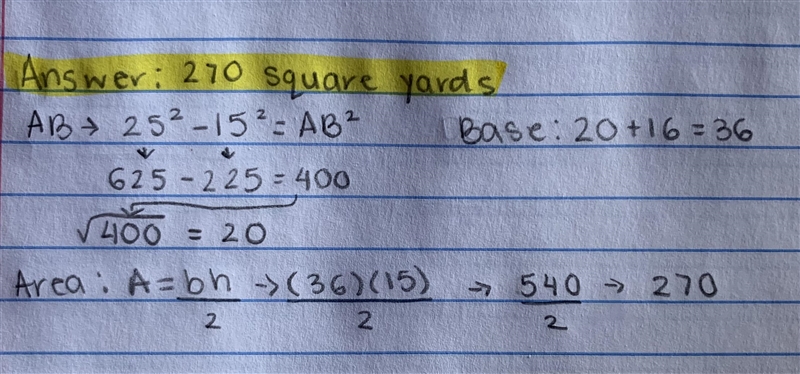 Answer: 270 square yards
AB → 25² - 15² = AB² Base: 20 + 16 = 36
625 - 225 = 400
√400 = 20
Area: A = bh/2 → (36)(15)/2 → 540/2 → 270